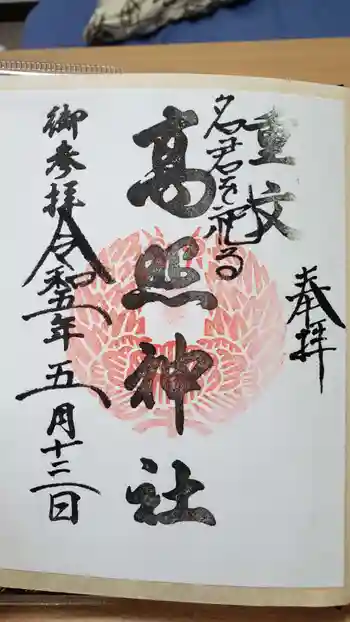 奉拝
重文
名君を祀る
高照神社
御参拝
令和五年五月十二日